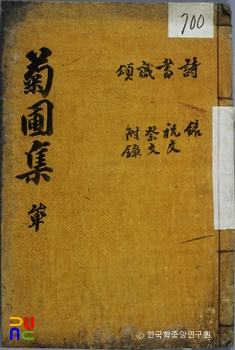 700
菊圃集 單
詩 錄
書 祝文
識 祭文
頌 附錄
ⓒ 한국학중앙연구원